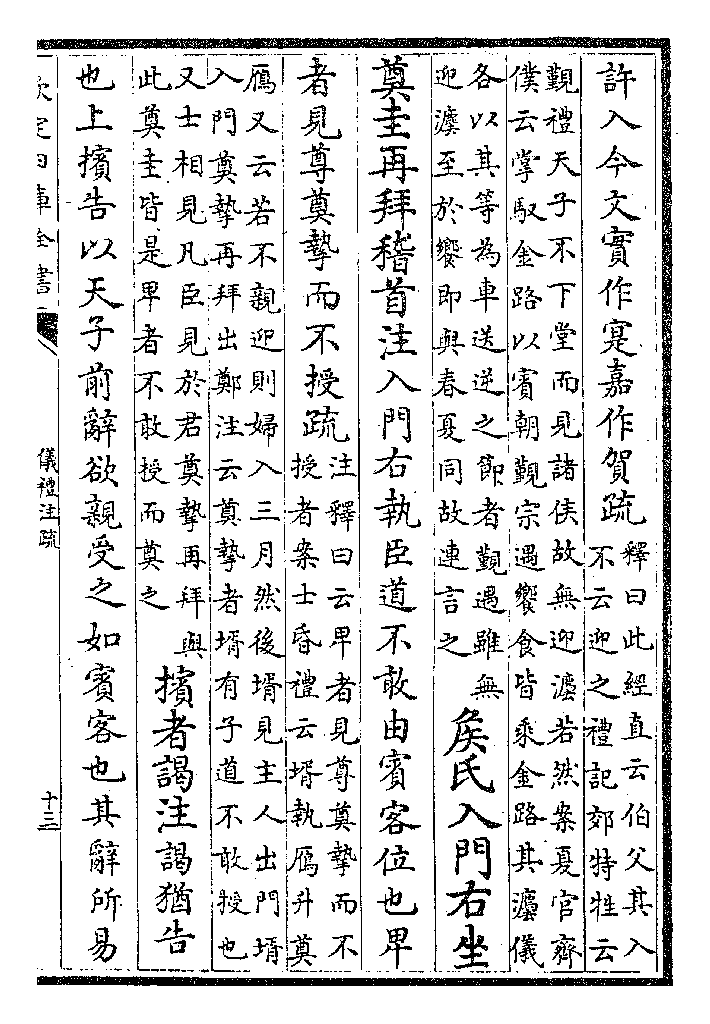 許入今文實作寔嘉作賀疏
釋曰此經直云伯父其入
不云迎之禮記郊特牲云
覲禮天子不下堂而見諸侯故無迎灋若然案夏官齊
僕云掌馭金路以賓朝覲宗遇饗食皆乘金路其灋儀
各以其等為車送逆之節者覲遇雖無
迎灋至於饗即與春夏同故連言之
矦氏入門右坐
奠圭再拜稽首注入門右執臣道不敢由賓客位也卑
者見尊奠摯而不授疏
注釋曰云卑者見尊奠摯而不
授者案士昏禮云壻執鴈升奠
鴈又云若不親迎則婦入三月然後壻見主人出門壻
入門奠摯再拜出鄭注云奠摯者壻有子道不敢授也
又士相見凡臣見於君奠摯再拜與
此奠圭皆是卑者不敢授而奠之
擯者謁注謁猶告
也上擯告以天子前辭欲親受之如賓客也其辭所易
欽定四庫全書
儀禮注疏
十三